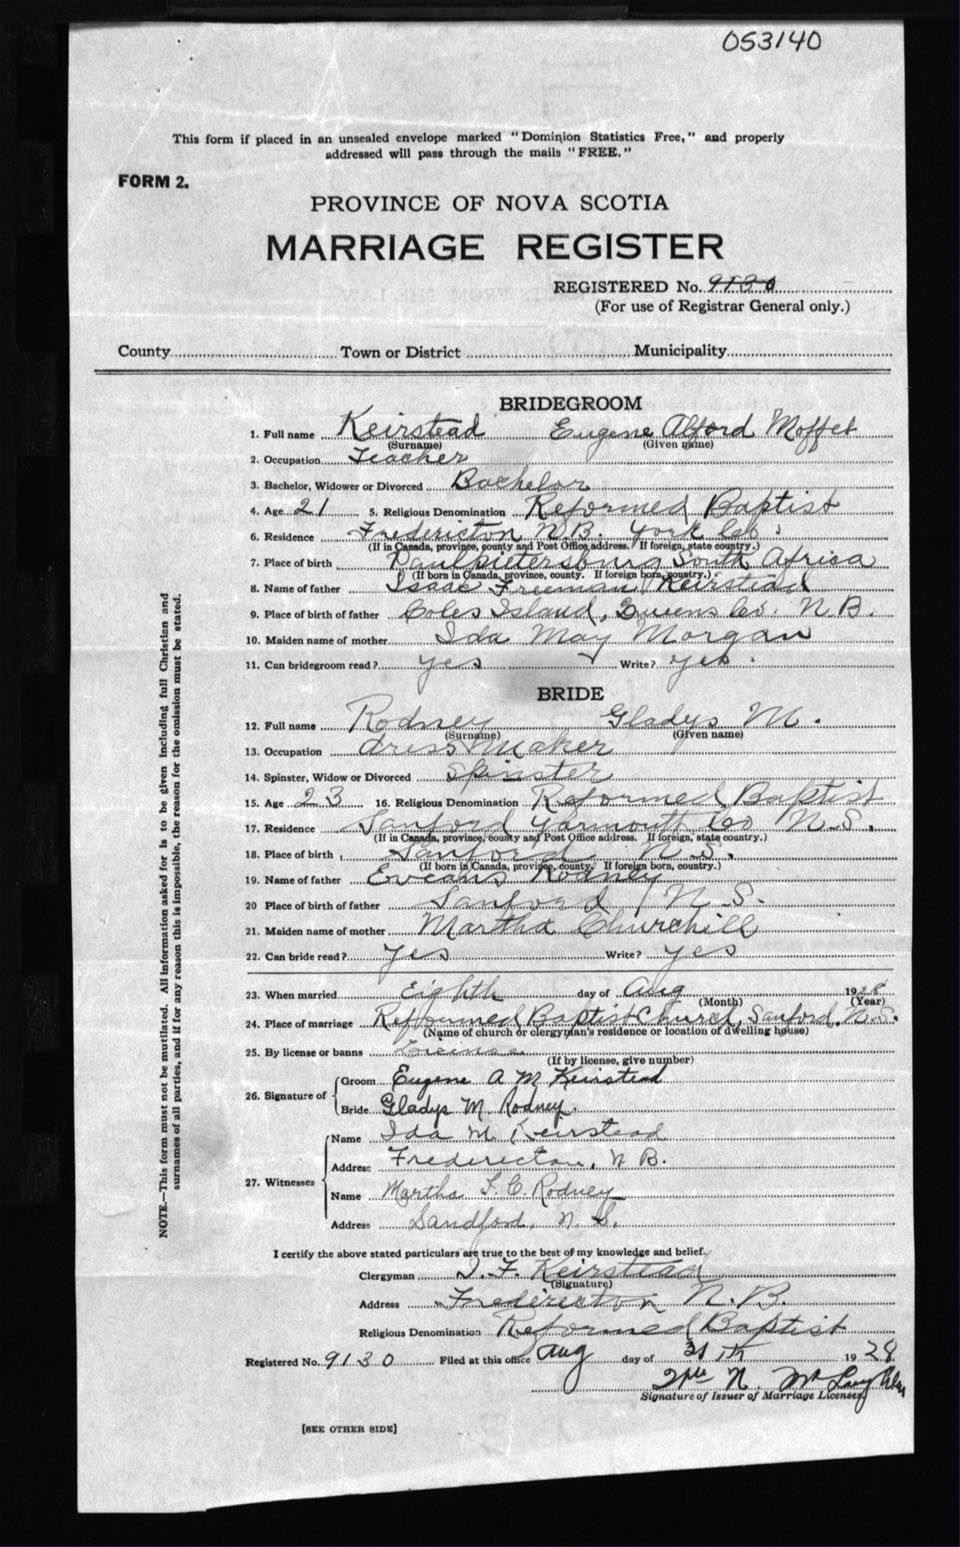 053140
This form if placed in an unsealed envelope marked "Dominion Statistics Free," and properly
addressed will pass through the mails "FREE."
FORM 2.
PROVINCE OF NOVA SCOTIA
MARRIAGE REGISTER
REGISTERED No. 9130
(For use of Registrar General only.)
County Town or District Municipality
BRIDEGROOM
1. Full name Keirstead Eugene Alford Moffet
(Surname) (Given name)
2. Occupation Teacher
3. Bachelor, Widower or Divorced Bachelor
4. Age 21 5. Religious Denomination Reformed Baptist
6. Residence Fredericton N.B. York Co.
(If in Canada, province, county and Post Office address. If foreign, state country.)
7. Place of birth Paulpietersburg South Africa
(If born in Canada, province, county. If foreign born, country.)
8. Name of father Isaac Freeman Keirstead
9. Place of birth of father Coles Island, Queens Co. N.B.
10. Maiden name of mother Ida May Morgan
11. Can bridegroom read? yes Write? yes.
BRIDE
12. Full name Rodney Gladys M.
(Surname) (Given name)
13. Occupation dress maker
14. Spinster, Widow or Divorced Spinster
15. Age 23 16. Religious Denomination Reformed Baptist
17. Residence Sanford Yarmouth Co N.S.
(If in Canada, province, county and Post Office address. If foreign, state country.)
18. Place of birth Sanford, N.S.
(If born in Canada, province, county. If foreign born, country.)
19. Name of father Rodney
20 Place of birth of father Sanford, N.S.
21. Maiden name of mother Martha Churchill
22. Can bride read? Yes Write? yes
23. When married Eighth day of Aug 1928
(Month) (Year)
24. Place of marriage Reformed Baptist Church, Sanford, N.S.
(Name of church or clergyman's residence or location of dwelling house)
25. By license or banns License
(If by license, give number)
26. Signature of Groom Eugene A M Keirstead
Bride Gladys M. Rodney.
27. Witnesses Name Ida M. Keirstead
Address Fredericton, N B.
Name Martha L. C. Rodney
Address Sandford, N. S.
I certify the above stated particulars are true to the best of my knowledge and belief.
Clergyman I. F. Keirstead
(Signature)
Address Fredericton N.B.
Religious Denomination Reformed Baptist
Registered No. 9130 Filed at this office Aug day of 31 1928
Signature of Issuer of Marriage Licenses
[SEE OTHER SIDE]
NOTE.—This form must not be mutilated. All information asked for is to be given including full Christian and
surnames of all parties, and if for any reason this is impossible, the reason for the omission must be stated.